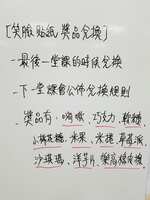 [笑臉貼紙獎品兌換]
-最後一堂課的時候兌換
-下一堂課會公佈兌換規則
-獎品有:嗨啾、巧克力、軟糖、
小棉花糖、水果、米捲、草莓派、
沙琪瑪、洋芋片、樂高積木換